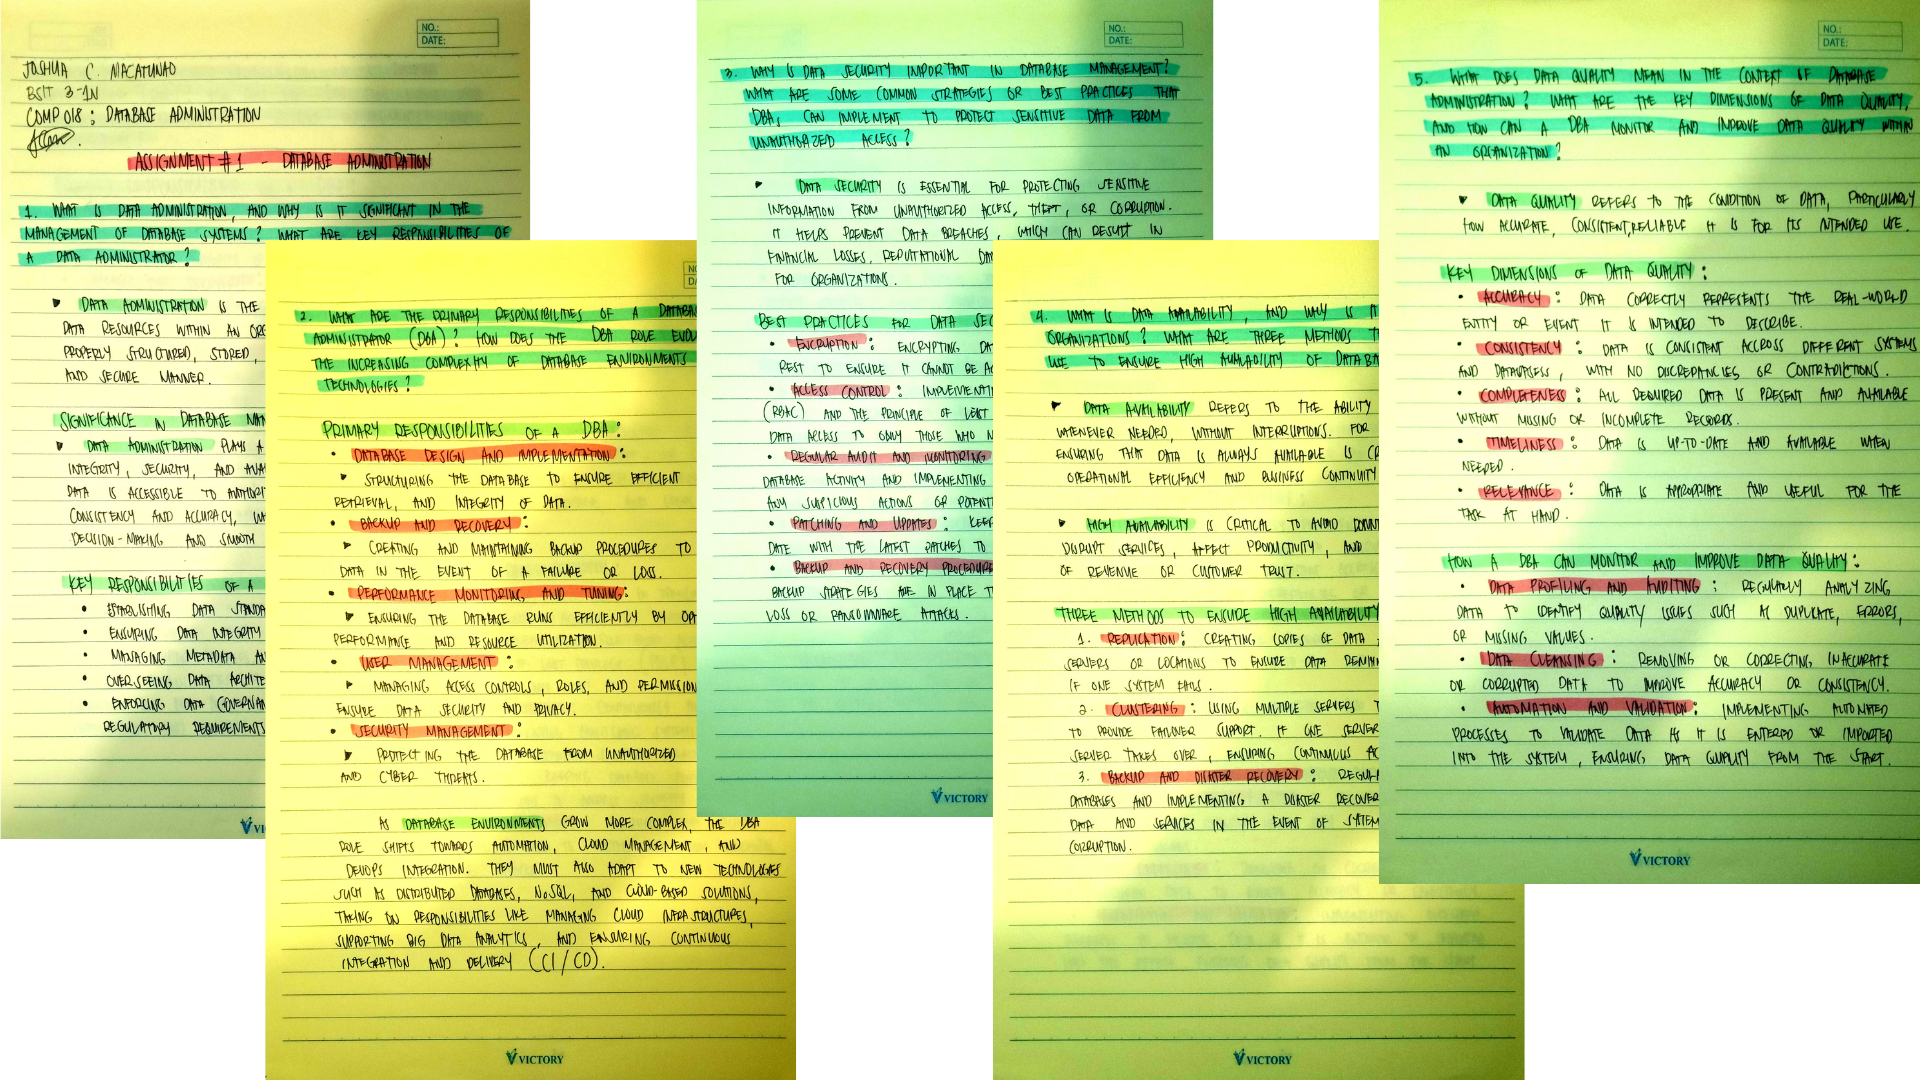 NO.:
DATE:
JOSHUA C. MACATUNAO
BSIT 3-1N
COMP 018 : DATABASE ADMINISTRATION
ASSIGNMENT #1 - DATABASE ADMINISTRATION
1. WHAT IS DATA ADMINISTRATION, AND WHY IS IT SIGNIFICANT IN THE
MANAGEMENT OF DATABASE SYSTEMS? WHAT ARE KEY RESPONSIBILITIES OF
A DATA ADMINISTRATOR?
DATA ADMINISTRATION IS THE
DATA RESOURCES WITHIN AN
PROPERLY STRUCTURED, STORED,
AND SECURE MANNER.
SIGNIFICANCE IN DATABASE
DATA ADMINISTRATION PLAYS A
INTEGRITY, SECURITY, AND
DATA IS ACCESSIBLE TO
CONSISTENCY AND ACCURACY,
DECISION-MAKING AND SMOOTH
KEY RESPONSIBILITIES OF A
• ESTABLISHING DATA
• ENSURING DATA INTEGRITY
• MANAGING METADATA
• OVERSEEING DATA
• ENFORCING DATA
REGULATORY REQUIREMENTS
2. WHAT ARE THE PRIMARY RESPONSIBILITIES OF A
ADMINISTRATOR (DBA)? HOW DOES THE DBA ROLE
THE INCREASING COMPLEXITY OF DATABASE ENVIRONMENTS
TECHNOLOGIES?
PRIMARY RESPONSIBILITIES OF A DBA:
• DATABASE DESIGN AND IMPLEMENTATION:
STRUCTURING THE DATABASE TO ENSURE EFFICIENT
RETRIEVAL, AND INTEGRITY OF DATA.
• BACKUP AND RECOVERY:
CREATING AND MAINTAINING BACKUP PROCEDURES TO
DATA IN THE EVENT OF A FAILURE OR LOSS.
• PERFORMANCE MONITORING AND TUNING:
ENSURING THE DATABASE RUNS EFFICIENTLY BY
PERFORMANCE AND RESOURCE UTILIZATION.
• USER MANAGEMENT:
MANAGING ACCESS CONTROLS, ROLES, AND
ENSURE DATA SECURITY AND PRIVACY.
• SECURITY MANAGEMENT:
PROTECTING THE DATABASE FROM UNAUTHORIZED
AND CYBER THREATS.
AS DATABASE ENVIRONMENTS GROW MORE COMPLEX, THE DBA
ROLE SHIFTS TOWARDS AUTOMATION, CLOUD MANAGEMENT, AND
DEVOPS INTEGRATION. THEY MUST ALSO ADAPT TO NEW TECHNOLOGIES
SUCH AS DISTRIBUTED DATABASES, NoSQL, AND CLOUD-BASED SOLUTIONS,
TAKING ON RESPONSIBILITIES LIKE MANAGING CLOUD INFRASTRUCTURES,
SUPPORTING BIG DATA ANALYTICS, AND ENSURING CONTINUOUS
INTEGRATION AND DELIVERY (CI/CD).
VICTORY
NO.:
DATE:
3. WHY IS DATA SECURITY IMPORTANT IN DATABASE MANAGEMENT?
WHAT ARE SOME COMMON STRATEGIES OR BEST PRACTICES THAT
DBA, CAN IMPLEMENT TO PROTECT SENSITIVE DATA FROM
UNAUTHORIZED ACCESS?
DATA SECURITY IS ESSENTIAL FOR PROTECTING SENSITIVE
INFORMATION FROM UNAUTHORIZED ACCESS, THEFT, OR CORRUPTION.
IT HELPS PREVENT DATA BREACHES, WHICH CAN RESULT IN
FINANCIAL LOSSES, REPUTATIONAL
FOR ORGANIZATIONS.
BEST PRACTICES FOR DATA
• ENCRYPTION: ENCRYPTING
REST TO ENSURE IT CANNOT BE
• ACCESS CONTROL:
(RBAC) AND THE PRINCIPLE OF LEAST
DATA ACCESS TO ONLY THOSE WHO
• REGULAR AUDIT AND MONITORING
DATABASE ACTIVITY AND IMPLEMENTING
ANY SUSPICIOUS ACTIONS OR
• PATCHING AND UPDATES:
DATE WITH THE LATEST PATCHES TO
• BACKUP AND RECOVERY PROCEDURE
BACKUP STRATEGIES ARE IN PLACE
LOSS OR RANSOMWARE ATTACKS.
VICTORY
4. WHAT IS DATA AVAILABILITY, AND WHY IS
ORGANIZATIONS? WHAT ARE THREE METHODS
USE TO ENSURE HIGH AVAILABILITY OF
DATA AVAILABILITY REFERS TO THE ABILITY
WHENEVER NEEDED, WITHOUT INTERRUPTIONS. FOR
ENSURING THAT DATA IS ALWAYS AVAILABLE IS
OPERATIONAL EFFICIENCY AND BUSINESS CONTINUITY
HIGH AVAILABILITY IS CRITICAL TO AVOID
DISRUPT SERVICES, AFFECT PRODUCTIVITY, AND
OF REVENUE OR CUSTOMER TRUST.
THREE METHODS TO ENSURE HIGH AVAILABILITY
1. REPLICATION: CREATING COPIES OF DATA
SERVERS OR LOCATIONS TO ENSURE DATA
IF ONE SYSTEM FAILS.
2. CLUSTERING: USING MULTIPLE SERVERS
TO PROVIDE FAILOVER SUPPORT. IF ONE SERVER
SERVER TAKES OVER, ENSURING CONTINUOUS
3. BACKUP AND DISASTER RECOVERY:
DATABASES AND IMPLEMENTING A DISASTER
DATA AND SERVICES IN THE EVENT OF SYSTEM
CORRUPTION.
VICTORY
NO.:
DATE:
5. WHAT DOES DATA QUALITY MEAN IN THE CONTEXT OF DATABASE
ADMINISTRATION? WHAT ARE THE KEY DIMENSIONS OF DATA QUALITY,
AND HOW CAN A DBA MONITOR AND IMPROVE DATA QUALITY WITHIN
AN ORGANIZATION?
DATA QUALITY REFERS TO THE CONDITION OF DATA, PARTICULARLY
HOW ACCURATE, CONSISTENT, RELIABLE IT IS FOR ITS INTENDED USE.
KEY DIMENSIONS OF DATA QUALITY:
• ACCURACY: DATA CORRECTLY REPRESENTS THE REAL-WORLD
ENTITY OR EVENT IT IS INTENDED TO DESCRIBE.
• CONSISTENCY: DATA IS CONSISTENT ACCROSS DIFFERENT SYSTEMS
AND DATABASES, WITH NO DISCREPANCIES OR CONTRADICTIONS.
• COMPLETENESS: ALL REQUIRED DATA IS PRESENT AND AVAILABLE
WITHOUT MISSING OR INCOMPLETE RECORDS.
• TIMELINESS: DATA IS UP-TO-DATE AND AVAILABLE WHEN
NEEDED.
• RELEVANCE: DATA IS APPROPRIATE AND USEFUL FOR THE
TASK AT HAND.
HOW A DBA CAN MONITOR AND IMPROVE DATA QUALITY:
• DATA PROFILING AND AUDITING: REGULARLY ANALYZING
DATA TO IDENTIFY QUALITY ISSUES SUCH AS DUPLICATE, ERRORS,
OR MISSING VALUES.
• DATA CLEANSING: REMOVING OR CORRECTING INACCURATE
OR CORRUPTED DATA TO IMPROVE ACCURACY OR CONSISTENCY.
• AUTOMATION AND VALIDATION: IMPLEMENTING AUTOMATED
PROCESSES TO VALIDATE DATA AS IT IS ENTERED OR IMPORTED
INTO THE SYSTEM, ENSURING DATA QUALITY FROM THE START.
VICTORY